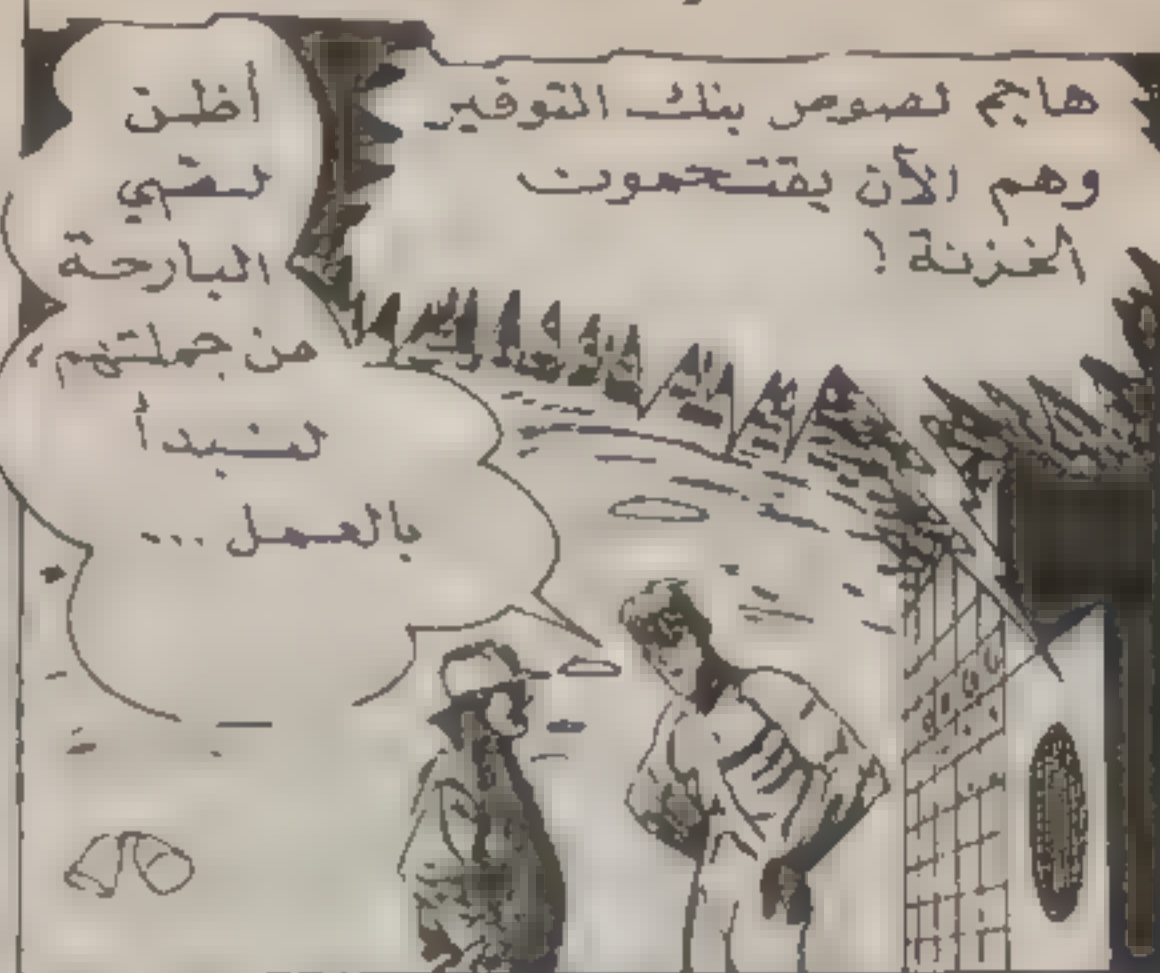 هاجم لصوص بنك التوفير
وهم الآن يقتحمون
الخزنة !
أظن
لصّي
البارحة
من جملتهم ،
لنبدأ
بالعمل ...